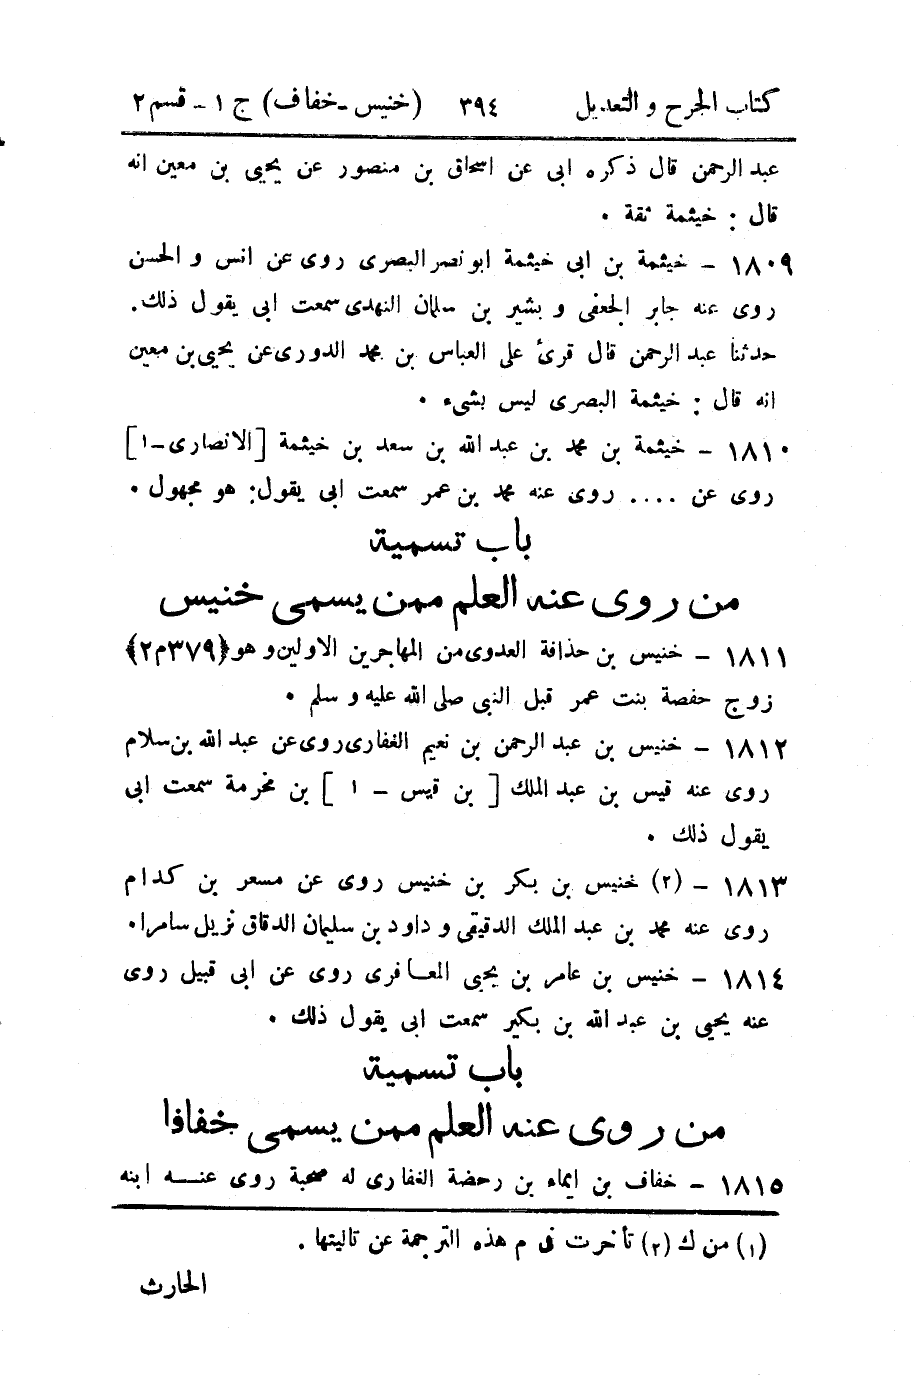 كتاب الجرح و التعديل ٣٩٤ (خنيس - خفاف) ج ١ - قسم ٢
عبد الرحمن قال ذكره ابى عن اسحاق بن منصور عن يحيى بن معين انه
قال : خيثمة ثقة .
١٨٠٩ - خيثمة بن ابى خيثمة ابو نصر البصرى روى عن انس و الحسن
روى عنه جابر الجعفى و بشير بن سلمان النهدى سمعت ابى يقول ذلك.
حدثنا عبد الرحمن قال قرئ على العباس بن محمد الدورى عن يحيى بن معين
انه قال : خيثمة البصرى ليس بشىء .
١٨١٠ - خيثمة بن محمد بن عبد الله بن سعد بن خيثمة [الانصارى-١]
روى عن .... روى عنه محمد بن عمر سمعت ابى يقول: هو مجهول .
باب تسمية
من روى عنه العلم ممن يسمى خنيس
١٨١١ - خنيس بن حذافة العدوى من المهاجرين الاولين و هو ﴿٣٧٩م٢﴾
زوج حفصة بنت عمر قبل النبى صلى الله عليه و سلم .
١٨١٢ - خنيس بن عبد الرحمن بن نعيم الغفارى روى عن عبد الله بن سلام
روى عنه قيس بن عبد الملك [ بن قيس - ١ ] بن مخرمة سمعت ابى
يقول ذلك .
١٨١٣ - (٢) خنيس بن بكر بن خنيس روى عن مسعر بن كدام
روى عنه محمد بن عبد الملك الدقيقى و داود بن سليمان الدقاق نزيل سامرا.
١٨١٤ - خنيس بن عامر بن يحيى المعافرى روى عن ابى قبيل روى
عنه يحيى بن عبد الله بن بكير سمعت ابى يقول ذلك .
باب تسمية
من روى عنه العلم ممن يسمى خفافا
١٨١٥ - خفاف بن ايماء بن رحضة الغفارى له صحبة روى عنه ابنه
(١) من ك (٢) تأخرت فى م هذه الترجمة عن تاليتها .
الحارث